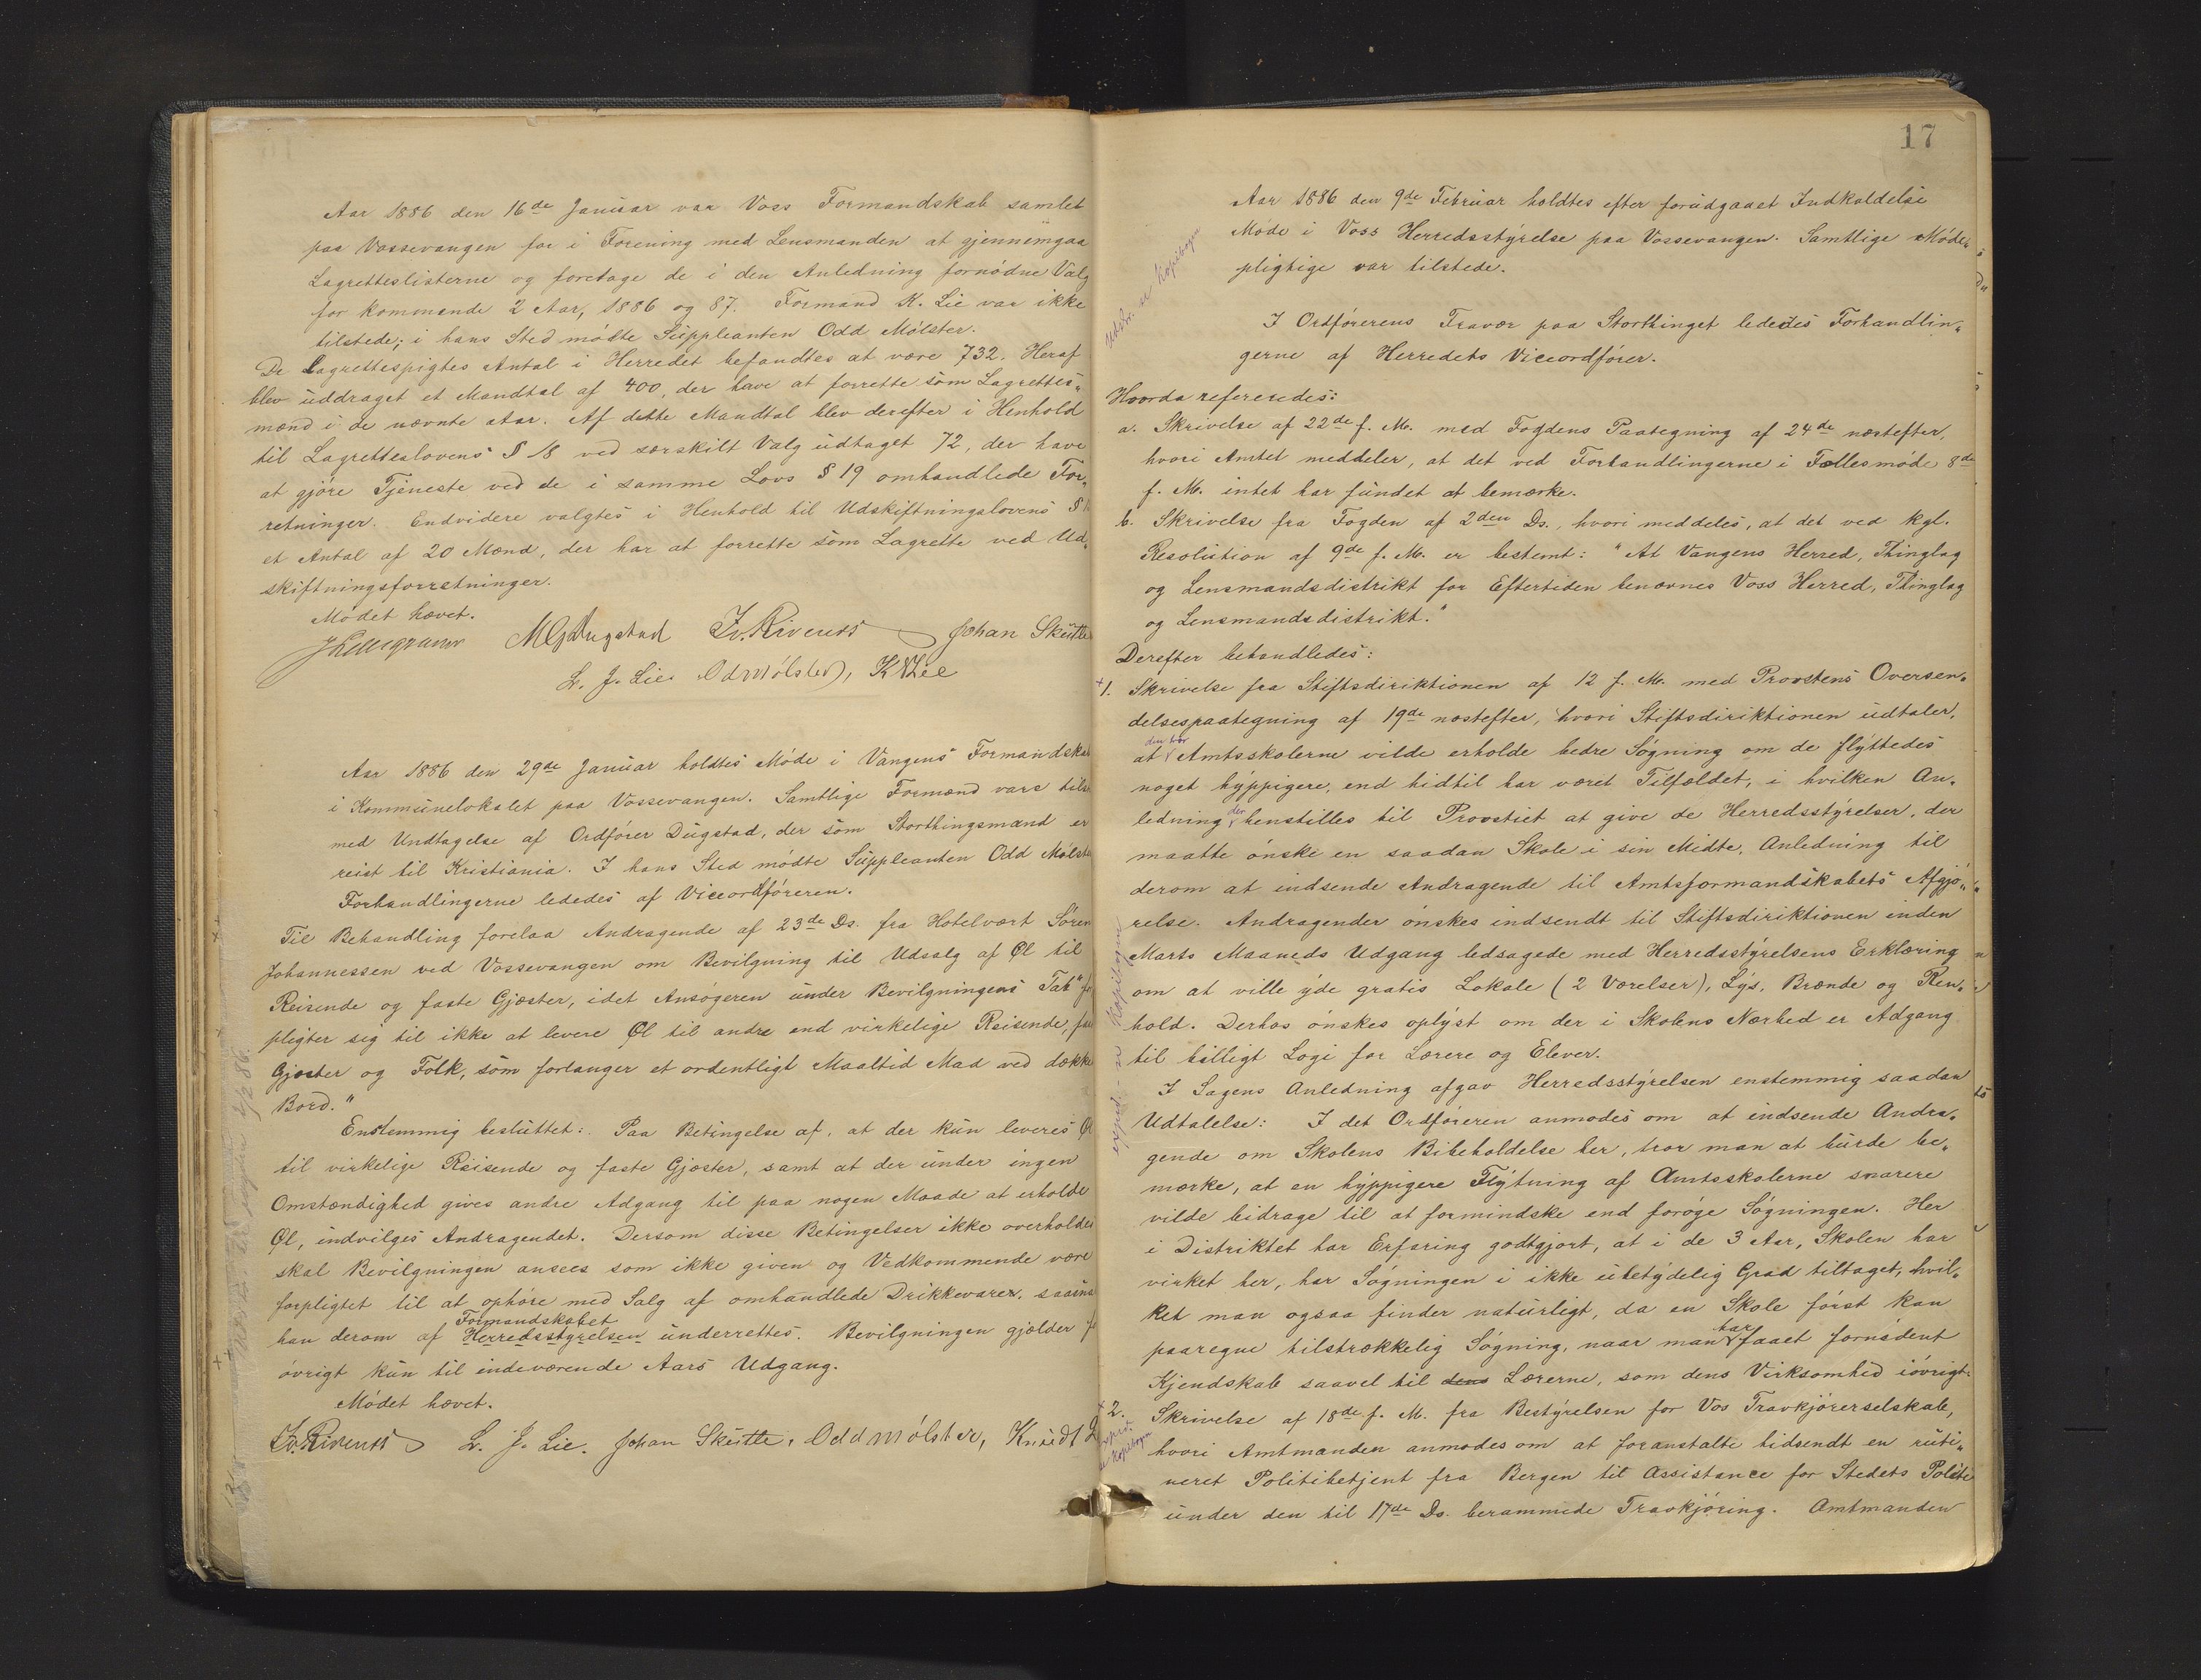 Aar 1886 den 16de Januar var Voss Formandskab samlet
paa Vossevangen for i Forening med Lensmanden at gjennemgaa
Lagretteslisterne og foretage de i den Anledning fornødne Valg
for kommende 2 Aar, 1886 og 87. Formand K. Lie var ikke
tilstede; i hans Sted mødte Suppleanten Odd Mølster.
De Lagrettespigtes Antal i Herredet befandtes at være 732. Heraf
blev uddraget et Mandtal af 400, der have at forrette som Lagrettes„
mænd i de nævnte Aar. Af dette Mandtal blev derefter i Henhold
til Lagretteslovens § 18 ved særskilt Valg udtaget 72, der have
at gjøre Tjeneste ved de i samme Lovs § 19 omhandlede For„
retninger. Endvidere valgtes i Henhold til Udskiftningslovens §
et Antal af 20 Mænd, der har at forrette som Lagrette ved Ud„
skiftningsforretninger.
Mødet hævet.
MGDugstad Johan Skutle
L. J. Lie. Odd Mølster, K Lie
Aar 1886 den 29de Januar holdtes Møde i Vangens Formandskab
i Kommunelokalet paa Vossevangen. Samtlige Formænd vare tilst
med Undtagelse af Ordfører Dugstad, der som Storthingsmand er
reist til Kristiania. I hans Sted mødte Suppleanten Odd Mølster
Forhandlingerne lededes af Viceordføreren.
Til Behandling forelaa Andragende af 23de Ds. fra Hotelvært Søren
Johannessen ved Vossevangen om Bevilgning til Udsalg af Øl til
Reisende og faste Gjæster, idet Ansøgeren under Bevilgningens Tab "for
pligter sig til ikke at levere Øl til andre end virkelige Reisende, faste
Gjæster og Folk, som forlanger et ordentligt Maaltid Mad ved dække
Bord."
Enstemmig besluttet: Paa Betingelse af, at der kun leveres Øl
til virkelige Reisende og faste Gjæster, samt at der under ingen
Omstændighed gives andre Adgang til paa nogen Maade at erholde
Øl, indvilges Andragendet. Dersom disse Betingelser ikke overholdes
skal Bevilgningen ansees som ikke given og Vedkommende være
forpligtet til at ophøre med Salg af omhandlede Drikkevarer, saasna
Formandskabet
han derom af Herredsstyrelsen underrettes. Bevilgningen gjælder f
øvrigt kun til indeværende Aars Udgang.
Mødet hævet.
L. J. Lie. Johan Skutle, Odd Mølster, Knudt L
17
Aar 1886 den 9de Februar holdtes efter forudgaaet Indkaldelse
Møde i Voss Herredsstyrelse paa Vossevangen. Samtlige Møde„
pligtige var tilstede.
Udskr. Kopibogen
I Ordførerens Fravær paa Storthinget lededes Forhandlin„
gerne af Herredets Viceordfører.
Hvorda refereredes:
a. Skrivelse af 22de f. M. med Fogdens Paategning af 24de næstefter,
hvori Amtet meddeler, at det ved Forhandlingerne i Fællesmøde 8de
f. M. intet har fundet at bemærke.
b. Skrivelse fra Fogden af 2den Ds., hvori meddeles, at det ved kgl.
Resolution af 9de f. M. er bestemt: "At Vangens Herred, Thinglag
og Lensmandsdistrikt for Eftertiden benævnes Voss Herred, Thinglag
og Lensmandsdistrikt."
Derefter behandledes:
+1. Skrivelse fra Stiftsdiriktionen af 12 f. M. med Provstens Oversen„
delsespaategning af 19de næstefter, hvori Stiftsdiriktionen udtaler,
den tror
at Amtsskolerne vilde erholde bedre Søgning om de flyttedes
noget hyppigere, end hidtil har været Tilfældet, i hvilken An„
der
ledning henstilles til Provstiet at give de Herredsstyrelser, der
maatte ønske en saadan Skole i sin Midte, Anledning til
derom at indsende Andragende til Amtsformandskabets Afgjø„
relse. Andragender ønskes indsendt til Stiftsdiriktionen inden
Marts Maaneds Udgang ledsagede med Herredsstyrelsens Erklæring
om at ville yde gratis Lokale (2 Værelser), Lys, Brænde og Ren„
hold. Derhos ønskes oplyst om der i Skolens Nærhed er Adgang
til billigt Logi for Lærere og Elever.
I Sagens Anledning afgav Herredsstyrelsen enstemmig saadan
Udtalelse: I det Ordføreren anmodes om at indsende Andra„
gende om Skolens Bibeholdelse her, tror man at burde be„
mærke, at en hyppigere Flytning af Amtsskolerne snarere
vilde bidrage til at formindske end forøge Søgningen. Her
i Distriktet har Erfaring godtgjort, at i de 3 Aar, Skolen har
virket her, har Søgningen i ikke ubetydelig Grad tiltaget, hvil„
ket man ogsaa finder naturligt, da en Skole først kan
har
paaregne tilstrækkelig Søgning, naar man faaet fornødent
Kjendskab saavel til dens Lærerne, som dens Virksomhed iøvrigt.
+2. Skrivelse af 18de f. M. fra Bestyrelsen for Vos Travkjørerselskab,
hvori Amtmanden anmodes om at foranstalte hidsendt en ruti„
neret Politibetjent fra Bergen til Assistance for Stedets Politi
under den til 17de Ds. berammede Travkjøring. Amtmanden